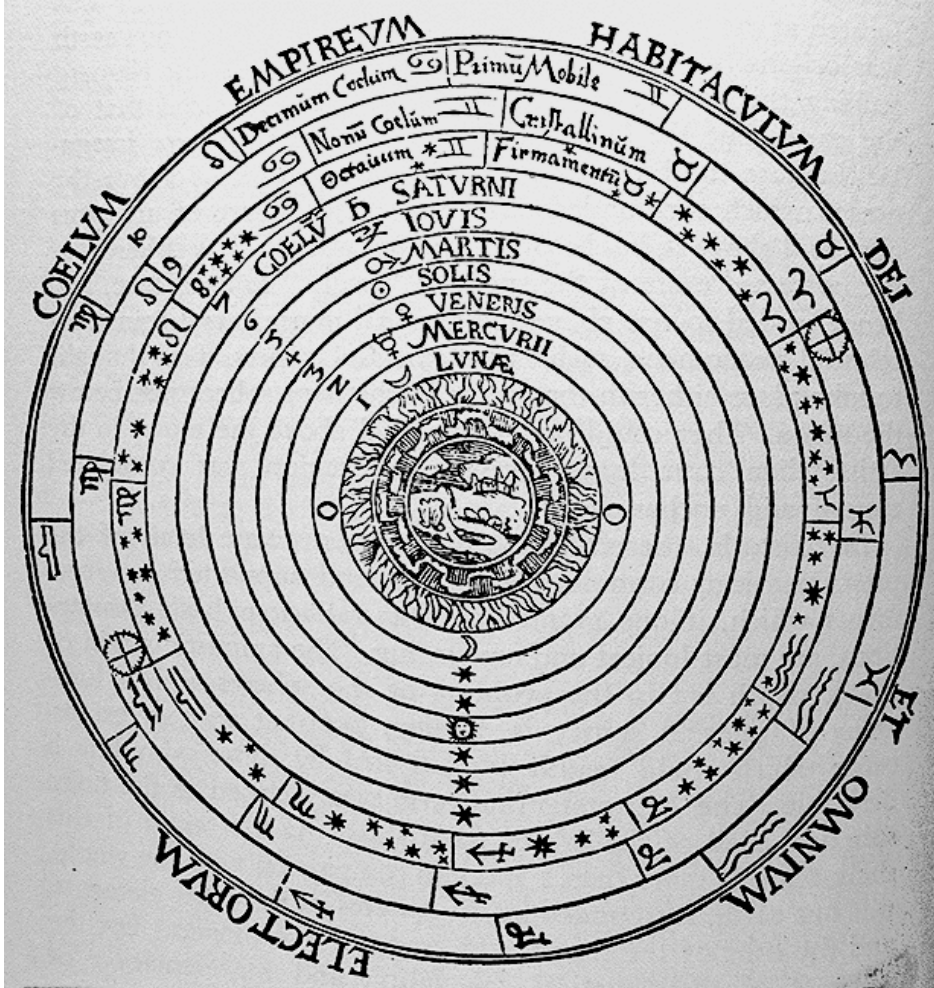 COELVM EMPIREVM HABITACVLVM DEI ET OMNIVM ELECTORVM
Decimūm Coelum ♋ Primū Mobile ♊
Nonū Coelum ♊ Cristallinūm ♉
Octauum ♊ Firmamentū ♉
COELV̄ ♄ SATVRNI
♃ IOVIS
♂ MARTIS
☉ SOLIS
♀ VENERIS
☿ MERCVRII
☽ LVNÆ
9
8
7
6
5
4
3
2
1